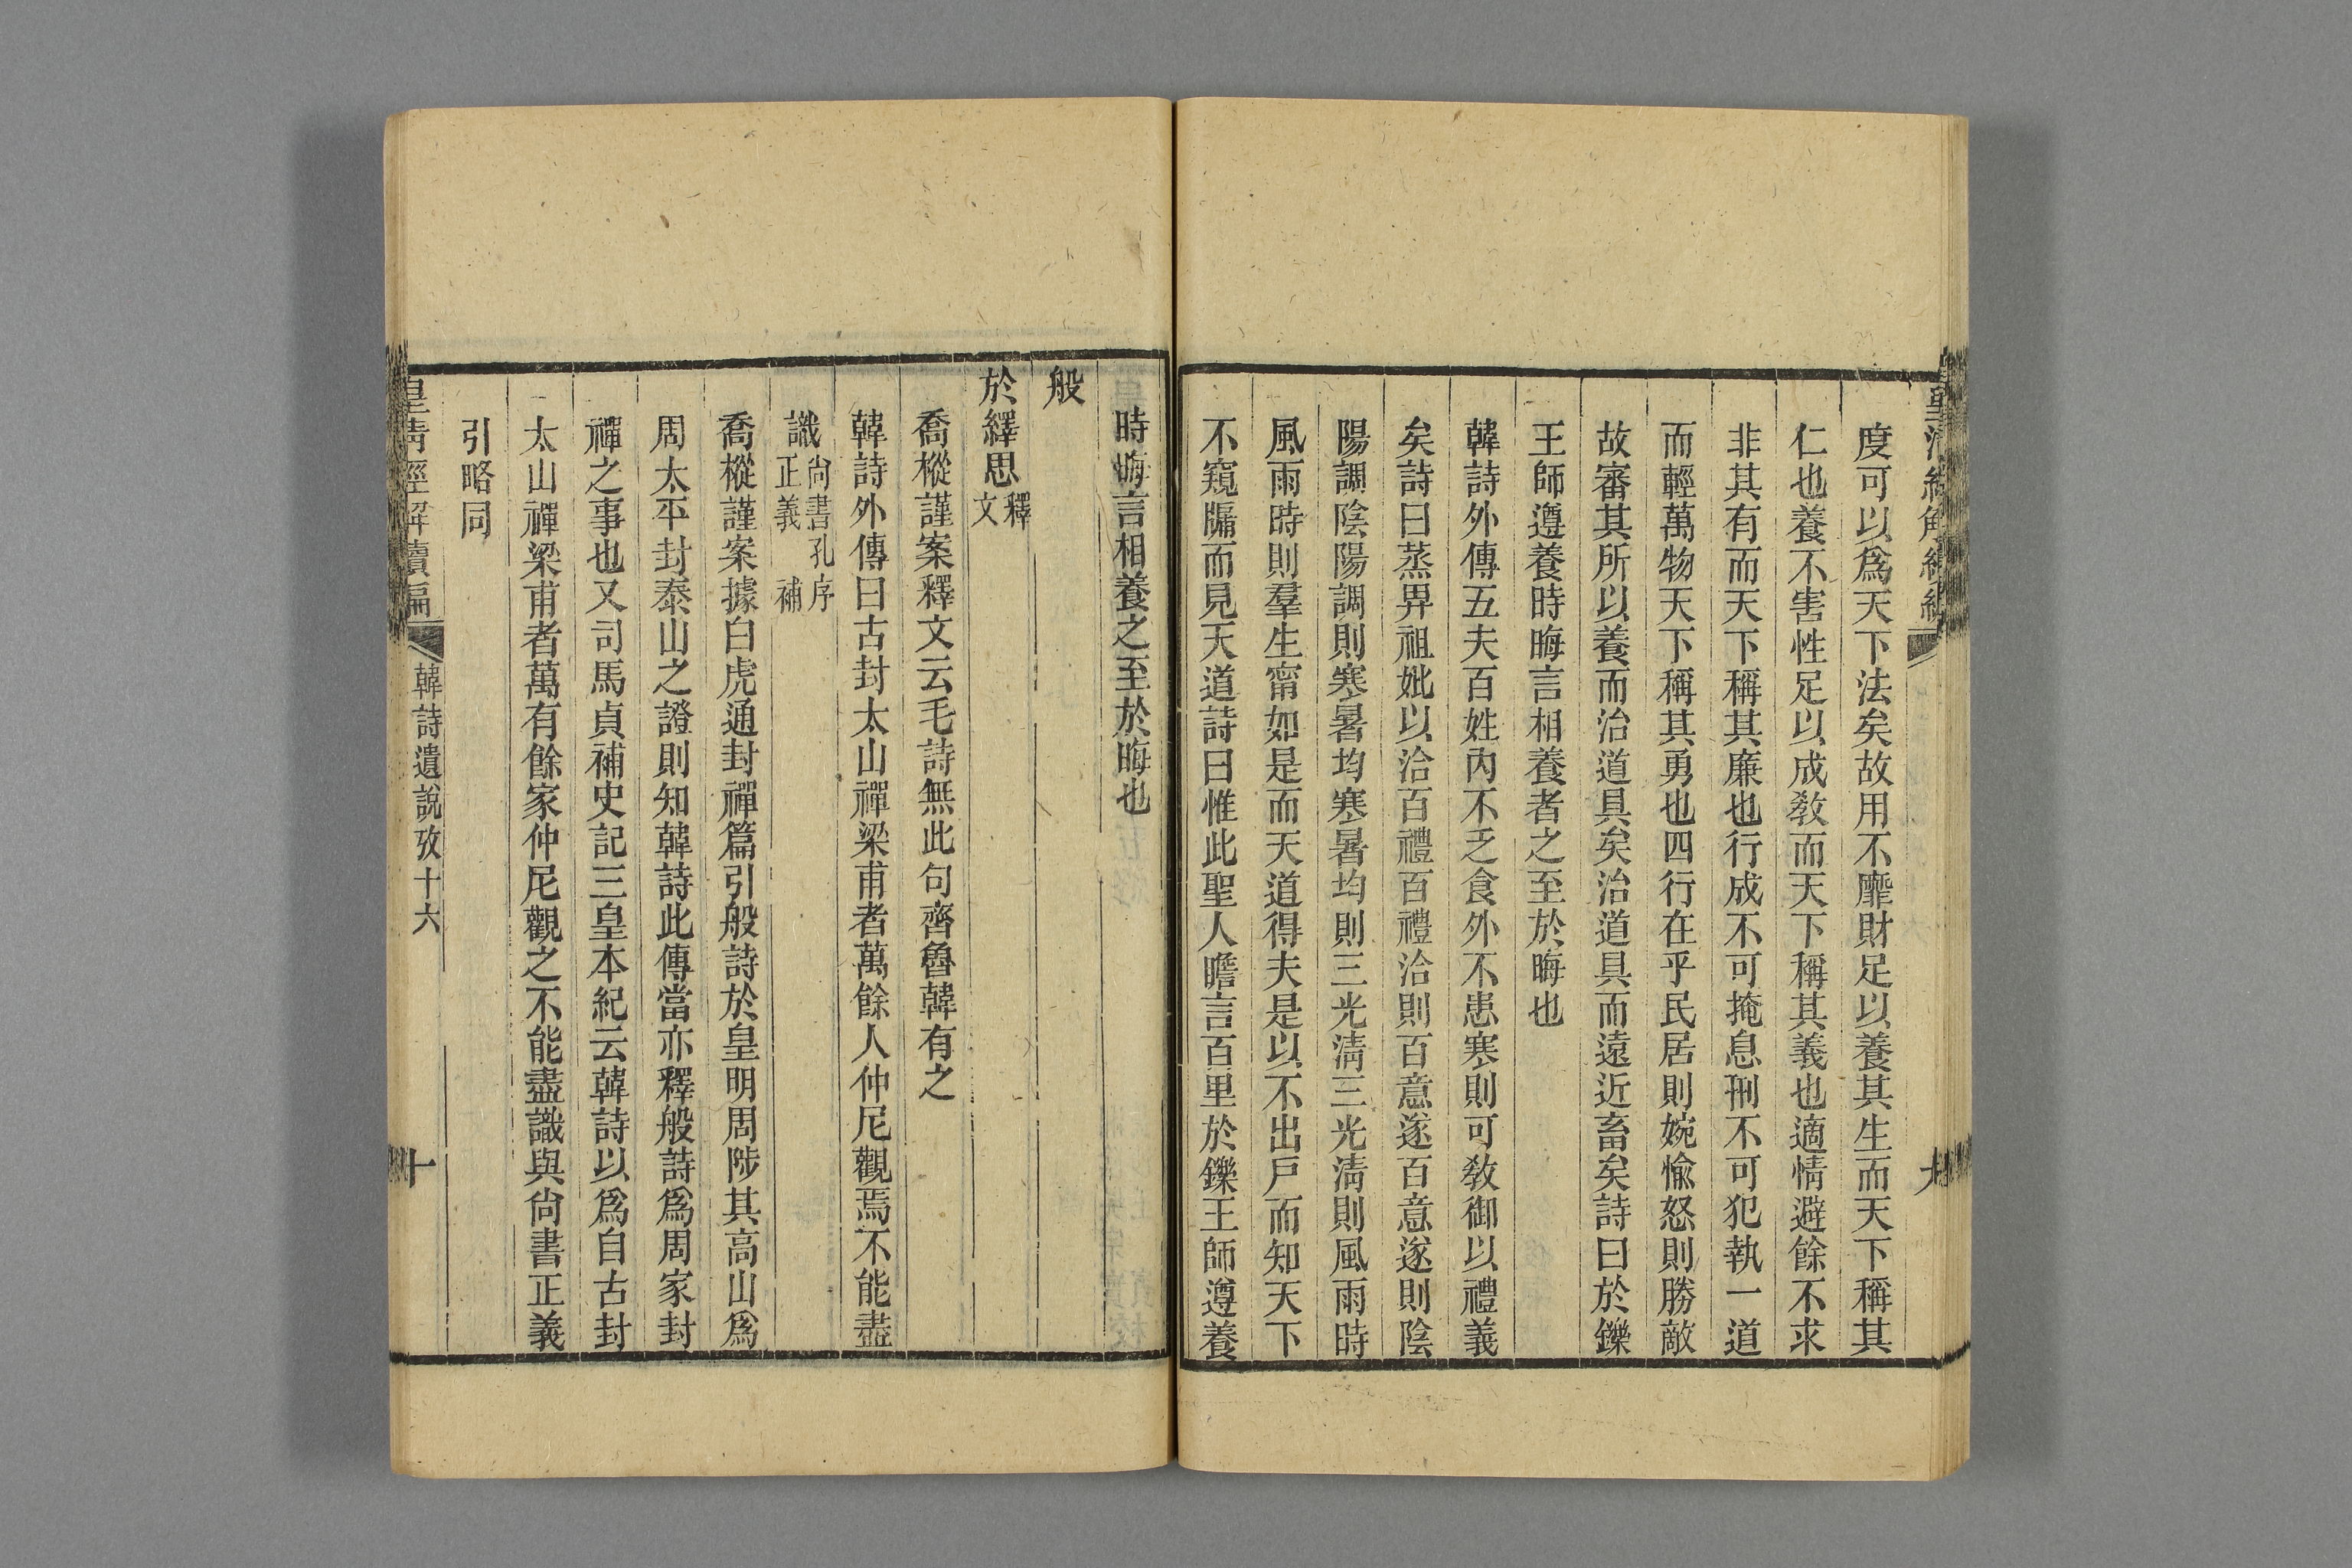 度可以爲天下法矣故用不靡財足以養其生而天下稱其
仁也養不害性足以成敎而天下稱其義也適情避餘不求
非其有而天下稱其廉也行成不可掩息刑不可犯執一道
而輕萬物天下稱其勇也四行在乎民居則婉愉怒則勝敵
故審其所以養而治道具矣治道具而遠近畜矣詩曰於鑠
王師遵養時晦言相養者之至於晦也
韓詩外傳五夫百姓內不乏食外不患寒則可敎御以禮義
矣詩曰蒸畀祖妣以洽百禮百禮洽則百意遂百意遂則陰
陽調陰陽調則寒暑均寒暑均則三光淸三光淸則風雨時
風雨時則羣生甯如是而天道得夫是以不出戸而知天下
不窺牖而見天道詩曰惟此聖人瞻言百里於鑠王師遵養
時晦言相養之至於晦也
般
於繹思釋文
喬樅謹案釋文云毛詩無此句齊魯韓有之
韓詩外傳曰古封太山禪梁甫者萬餘人仲尼觀焉不能盡
識尙書孔序正義補
喬樅謹案據白虎通封禪篇引般詩於皇明周陟其高山爲
周太平封泰山之證則知韓詩此傳當亦釋般詩爲周家封
禪之事也又司馬貞補史記三皇本紀云韓詩以爲自古封
太山禪梁甫者萬有餘家仲尼觀之不能盡識與尙書正義
引略同
皇淸經解續編
韓詩遺說攷十六
十